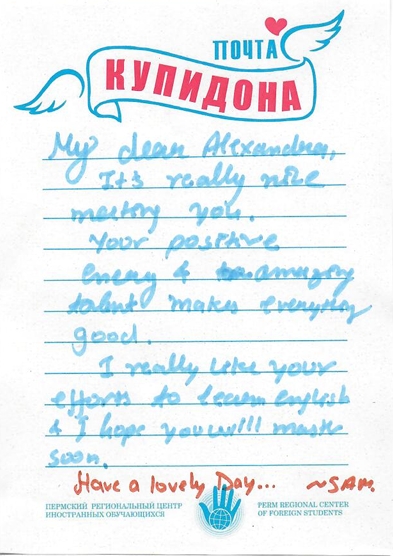 ПОЧТА
КУПИДОНА
My dear Alexandra,
It's really nice
meeting you.
Your positive
energy & amazing
talent makes everything
good.
I really like your
efforts to learn english
& I hope you will master
soon.
Have a lovely Day... ~SAM.
ПЕРМСКИЙ РЕГИОНАЛЬНЫЙ ЦЕНТР
ИНОСТРАННЫХ ОБУЧАЮЩИХСЯ
PERM REGIONAL CENTER
OF FOREIGN STUDENTS